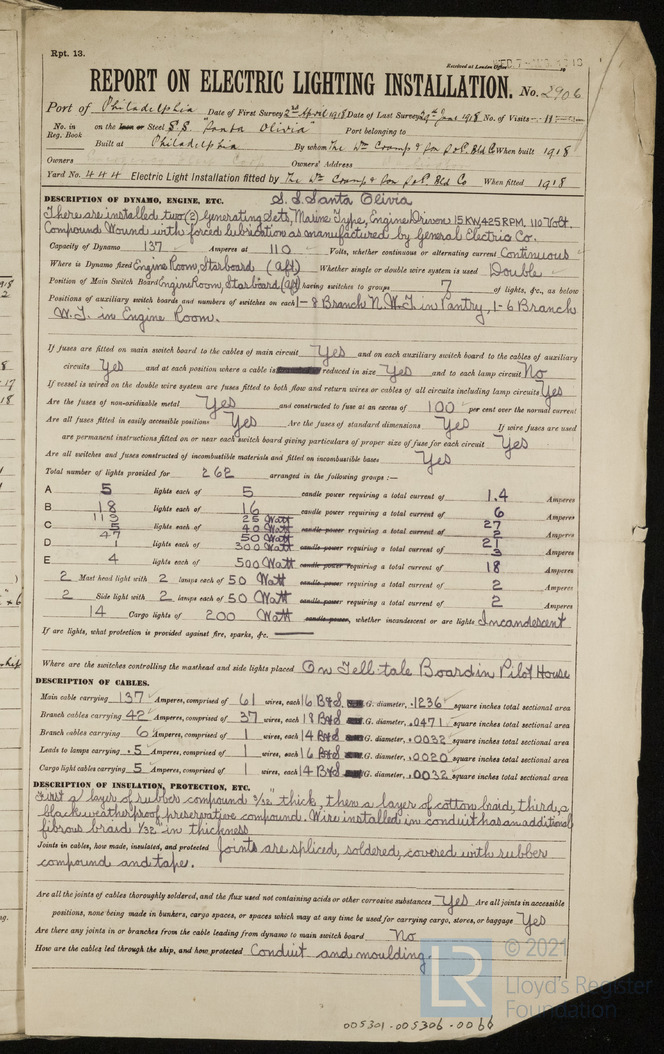 Rpt. 13.
Received at London Office
REPORT ON ELECTRIC LIGHTING INSTALLATION. No. 2906
Port of Philadelphia Date of First Survey 2nd April 1918 Date of Last Survey 1918 No. of Visits 11
No. in Reg. Book on the Iron or Steel S.S. "Santa Olivia" Port belonging to
Built at Philadelphia By whom The Wm Cramp & Son S & E Bld Co When built 1918
Owners Owners' Address
Yard No. 444 Electric Light Installation fitted by The Wm Cramp & Son S & E Bld Co When fitted 1918
DESCRIPTION OF DYNAMO, ENGINE, ETC. S.S. Santa Olivia
There are installed two (2) Generating Sets, Marine Type, Engine Driven 15 KW, 425 RPM, 110 Volt.
Compound Wound with forced lubrication as manufactured by General Electric Co.
Capacity of Dynamo 137 Amperes at 110 Volts, whether continuous or alternating current Continuous
Where is Dynamo fixed Engine Room, Starboard (aft) Whether single or double wire system is used Double
Position of Main Switch Board Engine Room, Starboard (aft) having switches to groups 7 of lights, &c., as below
Positions of auxiliary switch boards and numbers of switches on each 1-8 Branch N.W.T. in Pantry, 1-6 Branch
W.T. in Engine Room.
If fuses are fitted on main switch board to the cables of main circuit Yes and on each auxiliary switch board to the cables of auxiliary
circuits Yes and at each position where a cable is reduced in size Yes and to each lamp circuit No
If vessel is wired on the double wire system are fuses fitted to both flow and return wires or cables of all circuits including lamp circuits Yes
Are the fuses of non-oxidizable metal Yes and constructed to fuse at an excess of 100 per cent over the normal current
Are all fuses fitted in easily accessible positions Yes Are the fuses of standard dimensions Yes If wire fuses are used
are permanent instructions fitted on or near each switch board giving particulars of proper size of fuse for each circuit Yes
Are all switches and fuses constructed of incombustible materials and fitted on incombustible bases Yes
Total number of lights provided for 262 arranged in the following groups :—
A 5 lights each of 5 candle power requiring a total current of 1.4 Amperes
B 18 lights each of 16 candle power requiring a total current of 6 Amperes
113 25 Watt 27
C 5 lights each of 40 Watt candle power requiring a total current of 2 Amperes
47 50 Watt 21
D 1 lights each of 300 Watt candle power requiring a total current of 3 Amperes
E 4 lights each of 500 Watt candle power requiring a total current of 18 Amperes
2 Mast head light with 2 lamps each of 50 Watt candle power requiring a total current of 2 Amperes
2 Side light with 2 lamps each of 50 Watt candle power requiring a total current of 2 Amperes
14 Cargo lights of 200 Watt candle power, whether incandescent or arc lights Incandescent
If arc lights, what protection is provided against fire, sparks, &c.
Where are the switches controlling the masthead and side lights placed On Tell-tale Board in Pilot House
DESCRIPTION OF CABLES.
Main cable carrying 137 Amperes, comprised of 61 wires, each 16 B&S G. diameter, .1236 square inches total sectional area
Branch cables carrying 42 Amperes, comprised of 37 wires, each 18 B&S G. diameter, .0471 square inches total sectional area
Branch cables carrying 6 Amperes, comprised of 1 wires, each 14 B&S G. diameter, .0032 square inches total sectional area
Leads to lamps carrying .5 Amperes, comprised of 1 wires, each 16 B&S G. diameter, .0020 square inches total sectional area
Cargo light cables carrying 5 Amperes, comprised of 1 wires, each 14 B&S G. diameter, .0032 square inches total sectional area
DESCRIPTION OF INSULATION, PROTECTION, ETC.
First a layer of rubber compound 3/32" thick, then a layer of cotton braid, third, a
black weatherproof preservative compound. Wire installed in conduit has an additional
fibrous braid 1/32" in thickness
Joints in cables, how made, insulated, and protected Joints are spliced, soldered, covered with rubber
compound and tape.
Are all the joints of cables thoroughly soldered, and the flux used not containing acids or other corrosive substances Yes Are all joints in accessible
positions, none being made in bunkers, cargo spaces, or spaces which may at any time be used for carrying cargo, stores, or baggage Yes
Are there any joints in or branches from the cable leading from dynamo to main switch board No
How are the cables led through the ship, and how protected Conduit and moulding.
© 2021
LR
Lloyd's Register
Foundation
005301-005306-0066